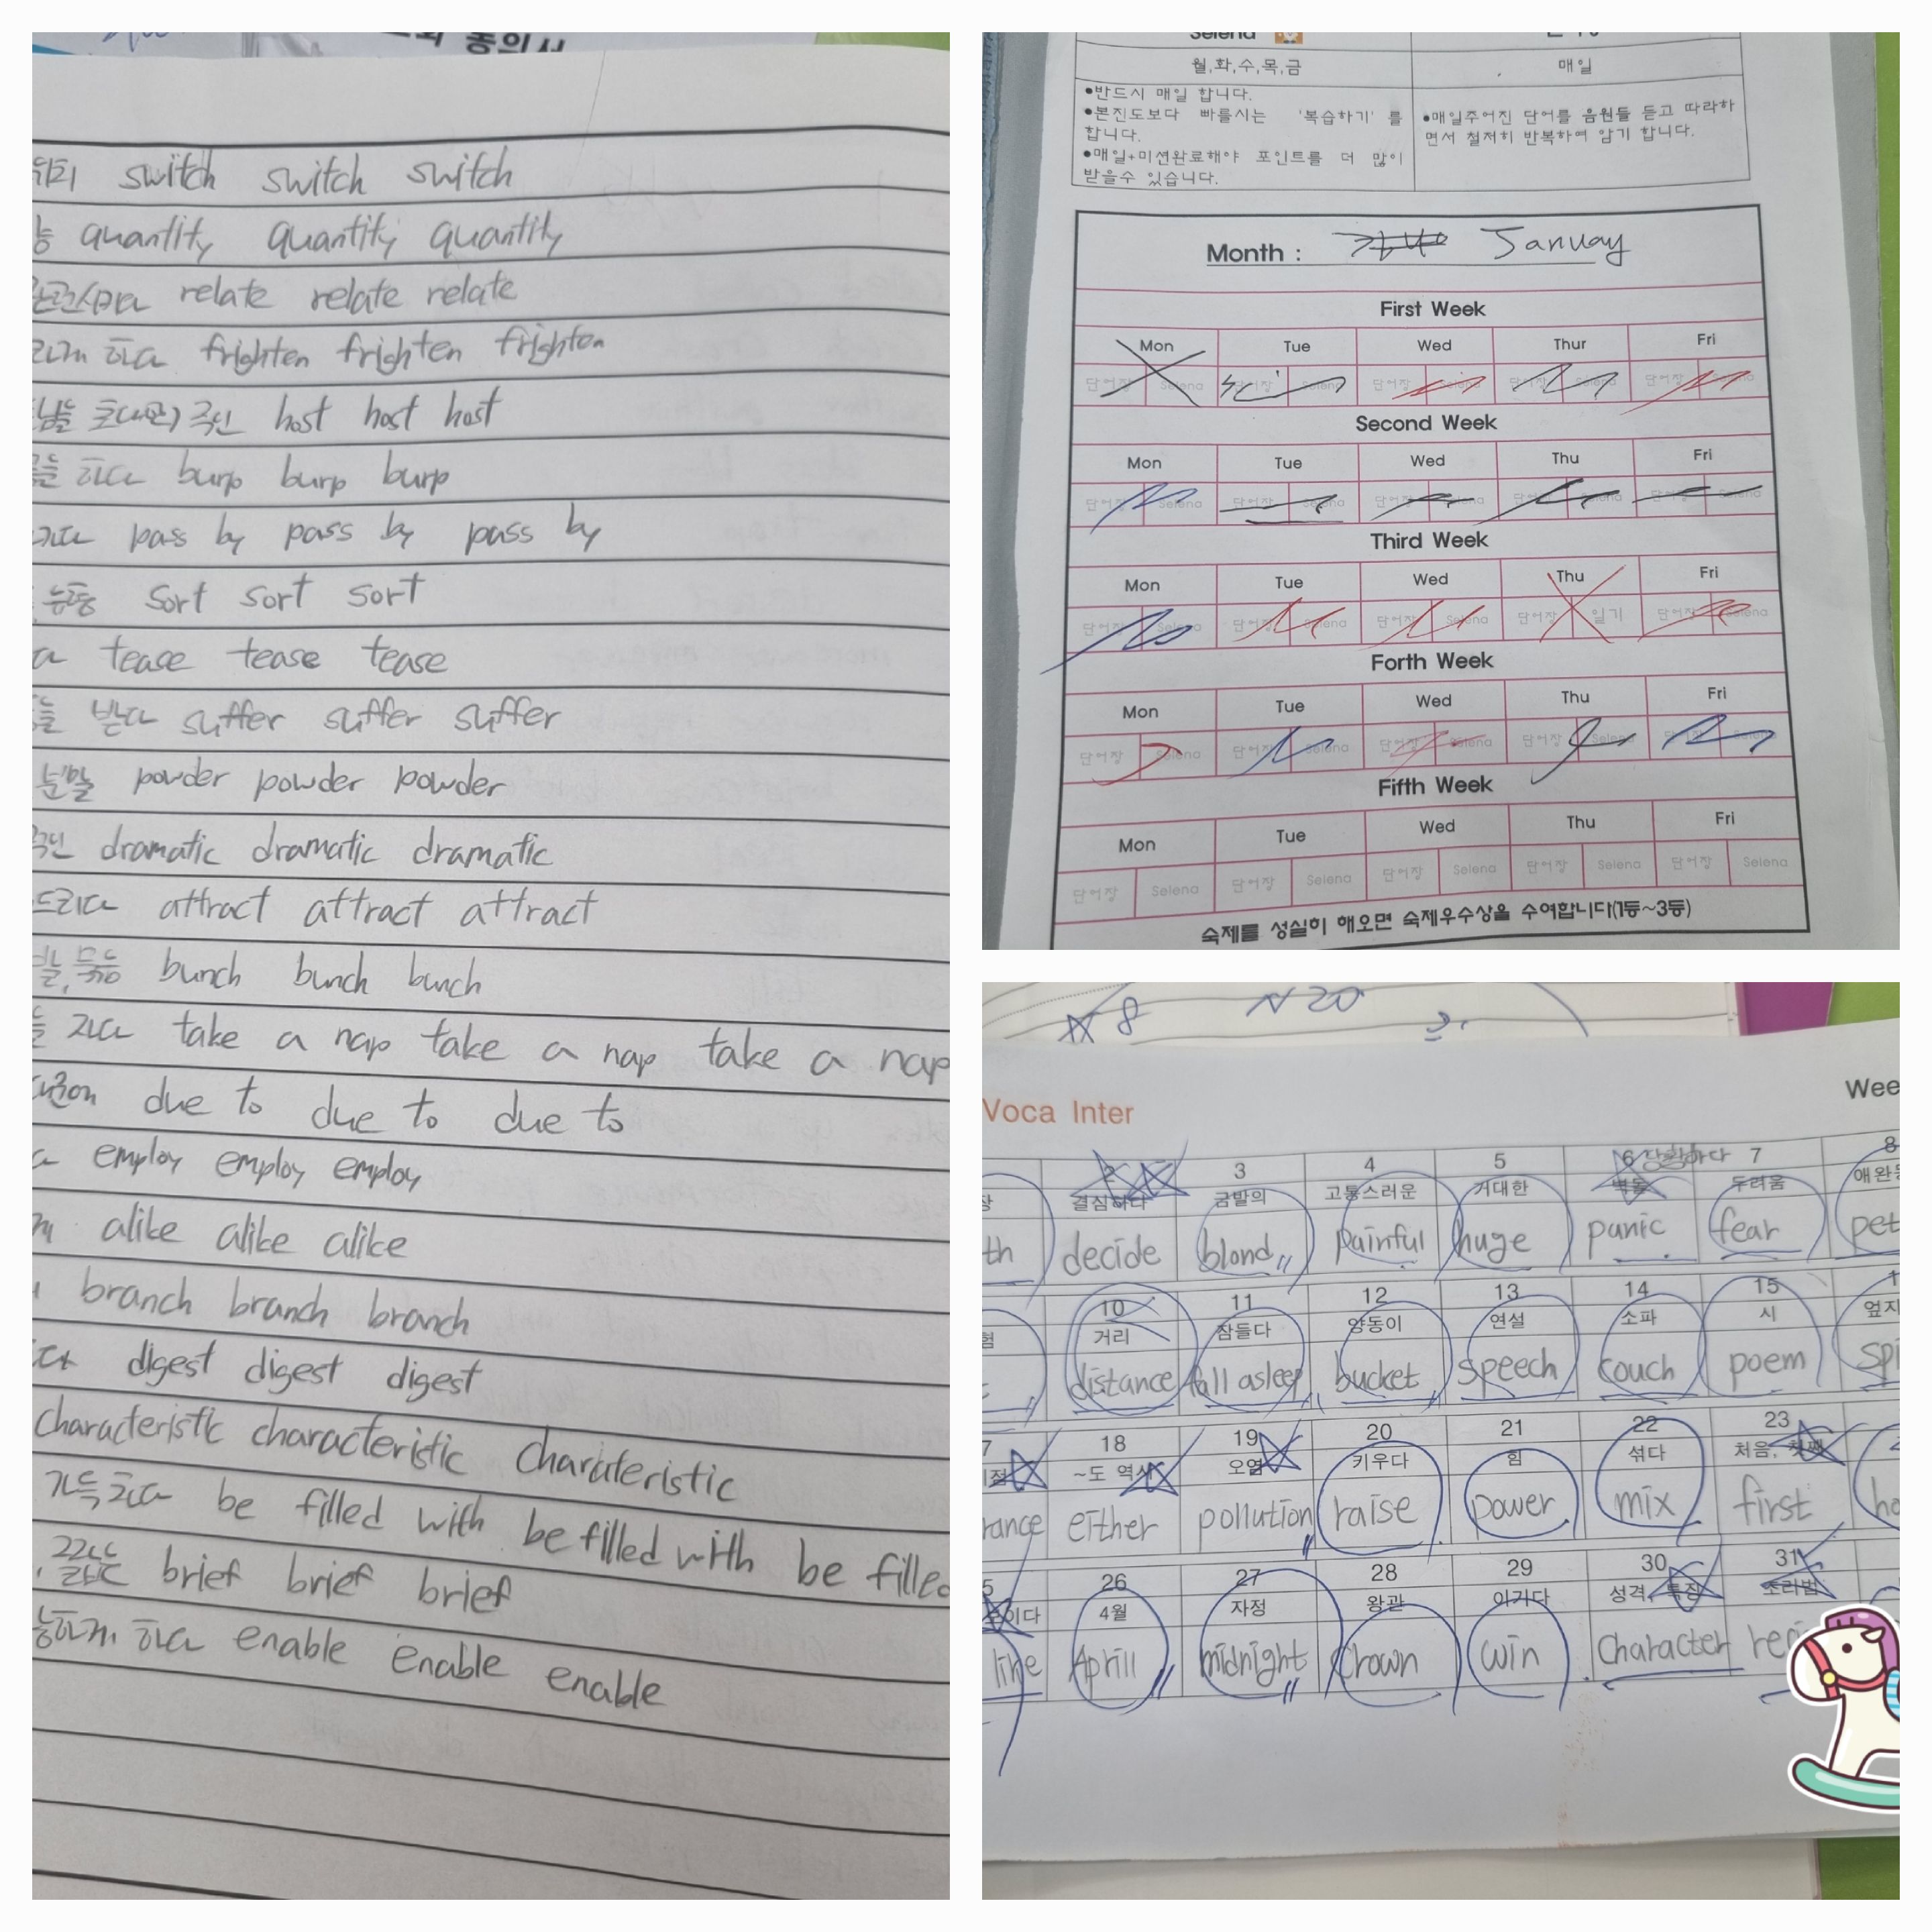 동의서
switch switch switch
quantity quantity quantity
relate relate relate
하다 frighten frighten frighten
host host host
하다 burp burp burp
pass by pass by pass by
sort sort sort
tease tease tease
받다 suffer suffer suffer
분말 powder powder powder
dramatic dramatic dramatic
attract attract attract
묶음 bunch bunch bunch
take a nap take a nap take a nap
due to due to due to
employ employ employ
alike alike alike
branch branch branch
digest digest digest
characteristic characteristic charateristic
be filled with be filled with be filled
brief brief brief
하다 enable enable enable
Selena
월,화,수,목,금 매일
●반드시 매일 합니다.
●본진도보다 빠를시는 '복습하기' 를
합니다.
●매일+미션완료해야 포인트를 더 많이
받을수 있습니다.
●매일주어진 단어를 음원들 듣고 따라하
면서 철저히 반복하여 암기 합니다.
Month : Januay
First Week
Mon Tue Wed Thur Fri
단어장 Selena 단어장 Selena 단어장 Selena 단어장 Selena 단어장 Selena
Second Week
Mon Tue Wed Thu Fri
단어장 Selena 단어장 Selena 단어장 Selena 단어장 Selena 단어장 Selena
Third Week
Mon Tue Wed Thu Fri
단어장 Selena 단어장 Selena 단어장 Selena 단어장 일기 단어장 Selena
Forth Week
Mon Tue Wed Thu Fri
단어장 Selena 단어장 Selena 단어장 Selena 단어장 Selena 단어장 Selena
Fifth Week
Mon Tue Wed Thu Fri
단어장 Selena 단어장 Selena 단어장 Selena 단어장 Selena 단어장 Selena
숙제를 성실히 해오면 숙제우수상을 수여합니다(1등~3등)
8 20
Voca Inter Wee
2 3 4 5 6 당황하다 7 8
결심하다 금발의 고통스러운 거대한 두려움 애완동
th decide blond painful huge panic fear pet
10 11 12 13 14 15
험 거리 잠들다 양동이 연설 소파 시 엎지
distance fall asleep bucket speech couch poem spi
7 18 19 20 21 22 23
점 ~도 역시 오염 키우다 힘 섞다 처음, 첫째
rance either pollution raise power mix first ho
5 26 27 28 29 30 31
이다 4월 자정 왕관 이기다 성격, 특징 조리법
line Aprill midnight crown win character re